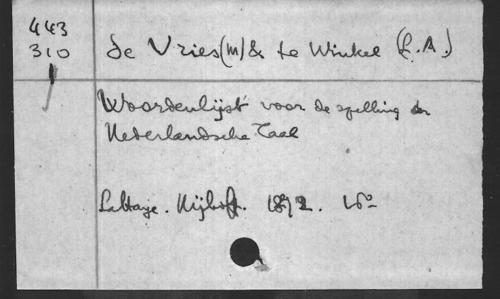 443
310
de Vries (M) & te Winkel (L.A.)
Woordenlijst voor de spelling der
Nederlandsche Taal
La Haye. Nijhoff. 1872. 16°